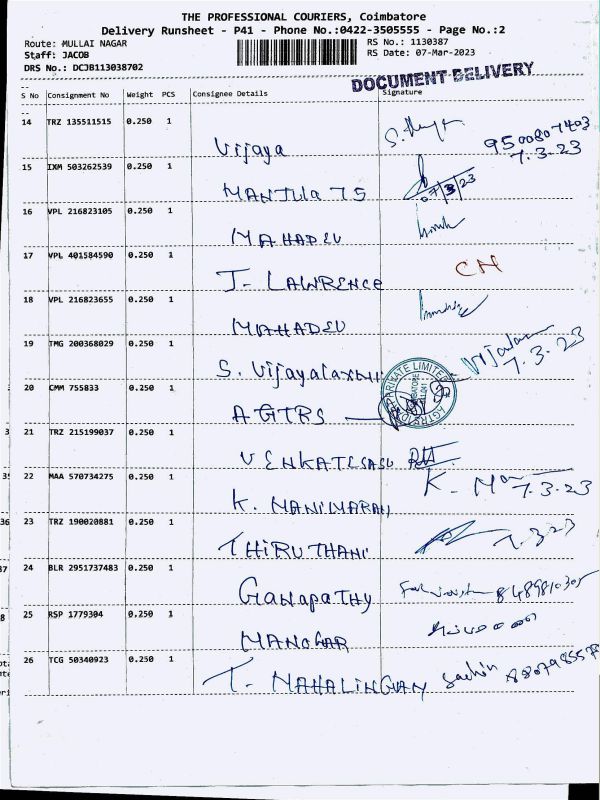 THE PROFESSIONAL COURIERS, Coimbatore
Delivery Runsheet - P41 - Phone No.:0422-3505555 - Page No.:2
Route: MULLAI NAGAR
RS No.: 1130387
Staff: JACOB
RS Date: 07-Mar-2023
DRS No.: DCJB113038702
DOCUMENT DELIVERY
S No Consignment No Weight PCS Consignee Details Signature
14 TRZ 135511515 0.250 1
Vijaya
9500807403
7.3.23
15 IXM 503262539 0.250 1
MANJUla 75 07/3/23
16 VPL 216823105 0.250 1
MAHADEV
17 VPL 401584590 0.250 1
J- LAWRENCE CM
18 VPL 216823655 0.250 1
MAHADEV
19 TMG 200368029 0.250 1
S. Vijayalaxmi
7.3.23
20 CMM 755833 0.250 1
AGTRS
PRIVATE LIMITED
21 TRZ 215199037 0.250 1
VENKATESASU
22 MAA 570734275 0.250 1
K. MANIMARAN
7.3.23
23 TRZ 190020881 0.250 1
THIRUTHANI 7.3.23
24 BLR 2951737483 0.250 1
GANAPATHY
25 RSP 1779304 0.250 1
MANOHAR
26 TCG 50340923 0.250 1
T. MAHALINGVAM Sachin